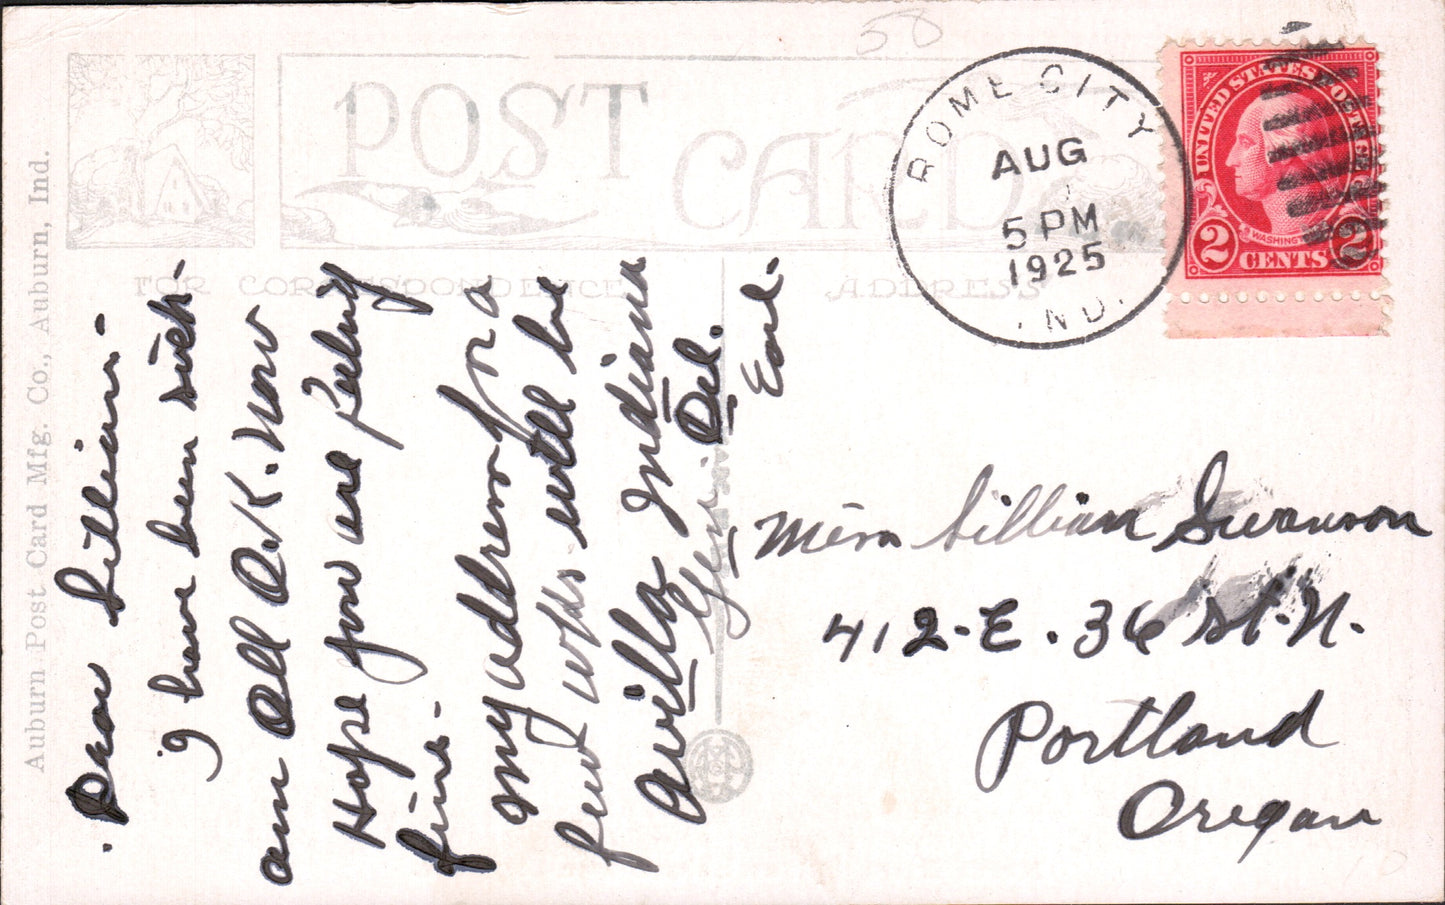 Auburn Post Card Mfg. Co., Auburn, Ind.
POST CARD
FOR CORRESPONDENCE
ADDRESS
58
ROME CITY
AUG
5 PM
1925
IND.
UNITED STATES POSTAGE
WASHINGTON
2 CENTS 2
Dear Lillian -
I have been sick -
am All O.K. now
Hope you are feeling
fine -
my address for a
few wks will be
Avilla Indiana
Gen. Del.
Earl -
Miss Lillian Swanson
412 - E. 36 St. N.
Portland
Oregon